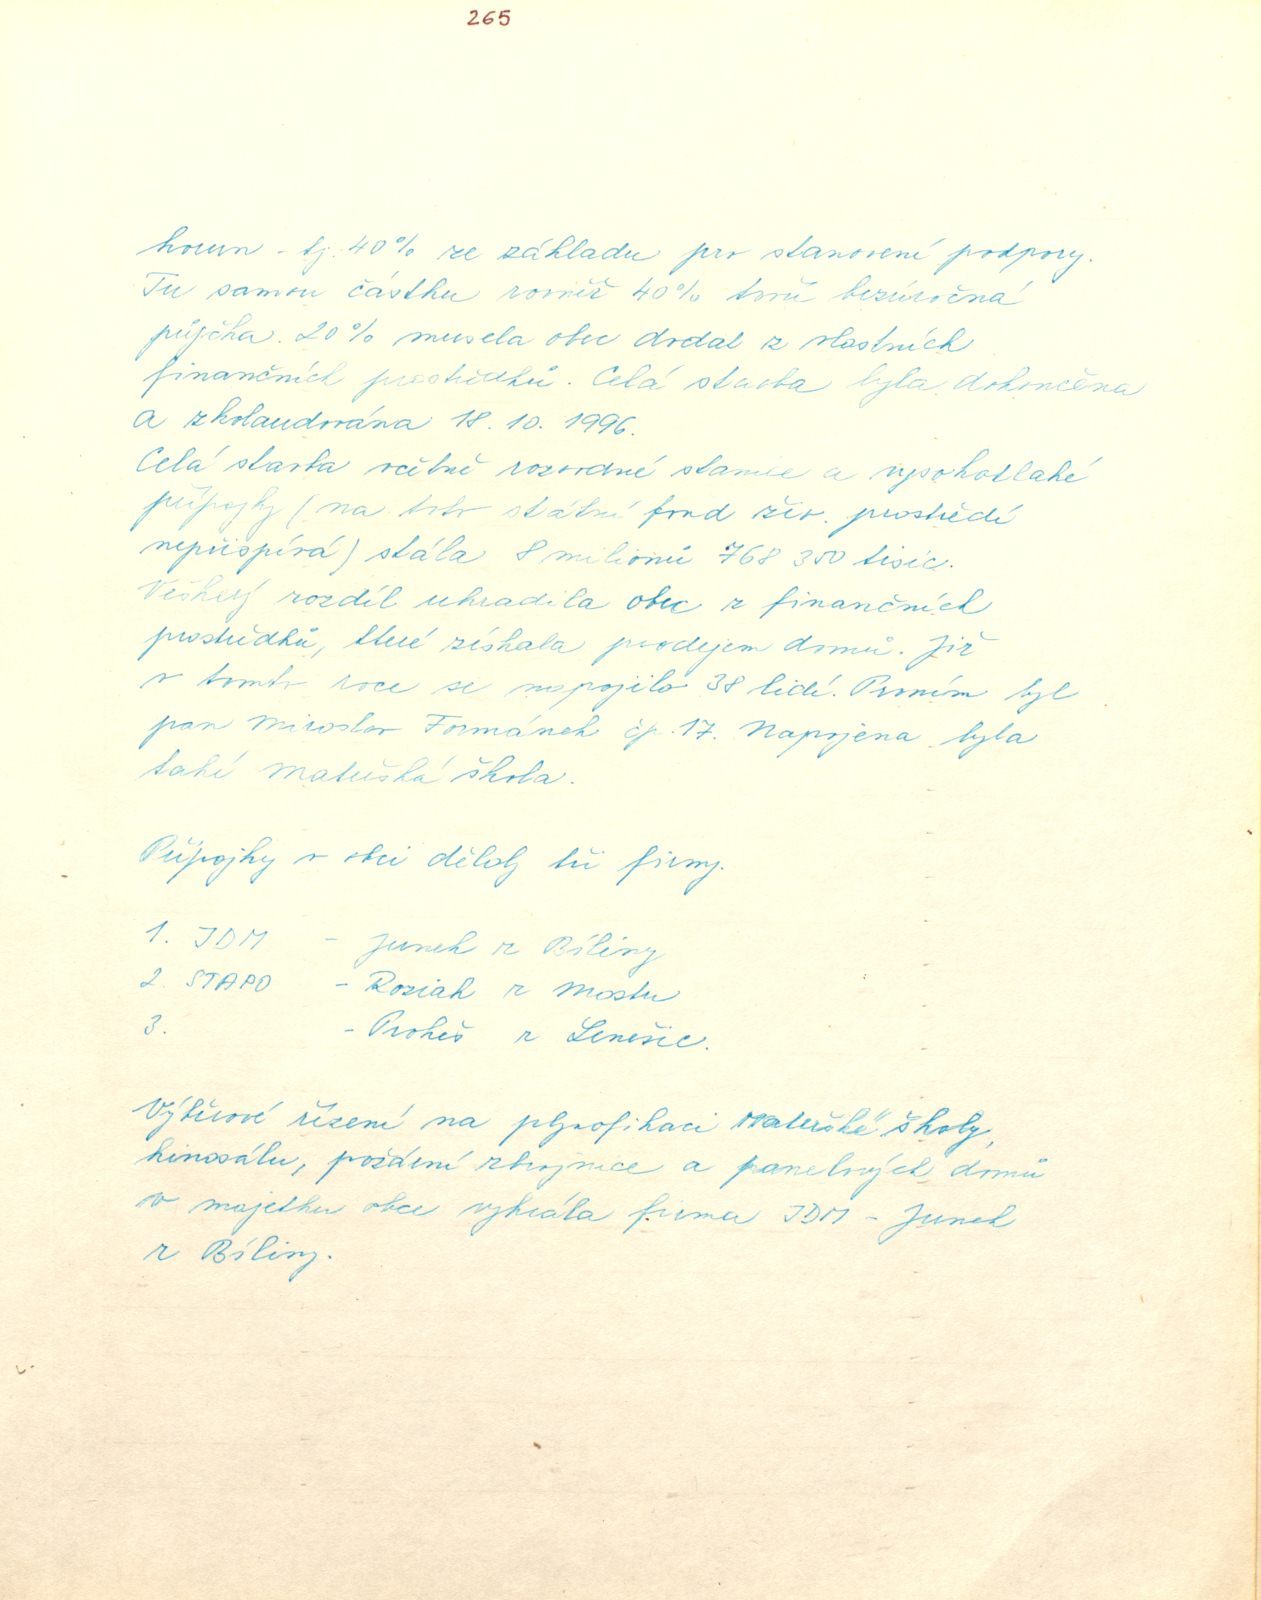 265
korun - tj. 40% ze základu pro stanovení podpory.
Tu samou částku rovněž 40% tvoří bezúročná
půjčka. 20% musela obec dodat z vlastních
finančních prostředků. Celá stavba byla dokončena
a zkolaudována 18. 10. 1996.
Celá stavba včetně rozvodné stanice a vysokotlaké
přípojky (na tuto státní fond živ. prostředí
nepřispívá) stála 8 milionů 768 350 tisíc.
Veškerý rozdíl uhradila obec z finančních
prostředků, které získala prodejem domů. Již
v tomto roce se napojilo 38 lidí. Prvním byl
pan Miroslav Formánek čp. 17. Napojena byla
také Mateřská škola.
Přípojky v obci dělaly tři firmy.
1. JDM - Junek z Bíliny
2. STAPO - Roziak z Mostu
3. - Prokeš z Lenešic.
Výběrové řízení na plynofikaci Mateřské školy,
kinosálu, požární zbrojnice a panelových domů
v majetku obce vyhrála firma JDM - Junek
z Bíliny.